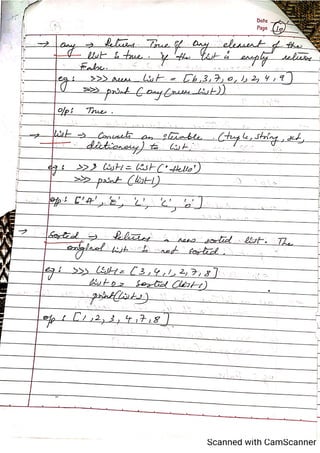 Date
Page 10
→ any → Returns True if any element of the
list is true. If the list is empty returns
False.
eg: >>> num_list = [6,3,7,0,1,2,4,9]
>>> print (any(num_list))
o/p: True.
→ list → Converts an iterable (tuple, string, set,
dictionary) to list.
eg: >>> list1 = list("Hello")
>>> print (list1)
o/p: ['H', 'E', 'L', 'L', 'O']
→ Sorted → Returns a new sorted list. The
original list is not sorted.
eg: >>> list1 = [3,4,1,2,7,8]
list2 = sorted (list1)
print(list2)
o/p: [1,2,3,4,7,8]
Scanned with CamScanner